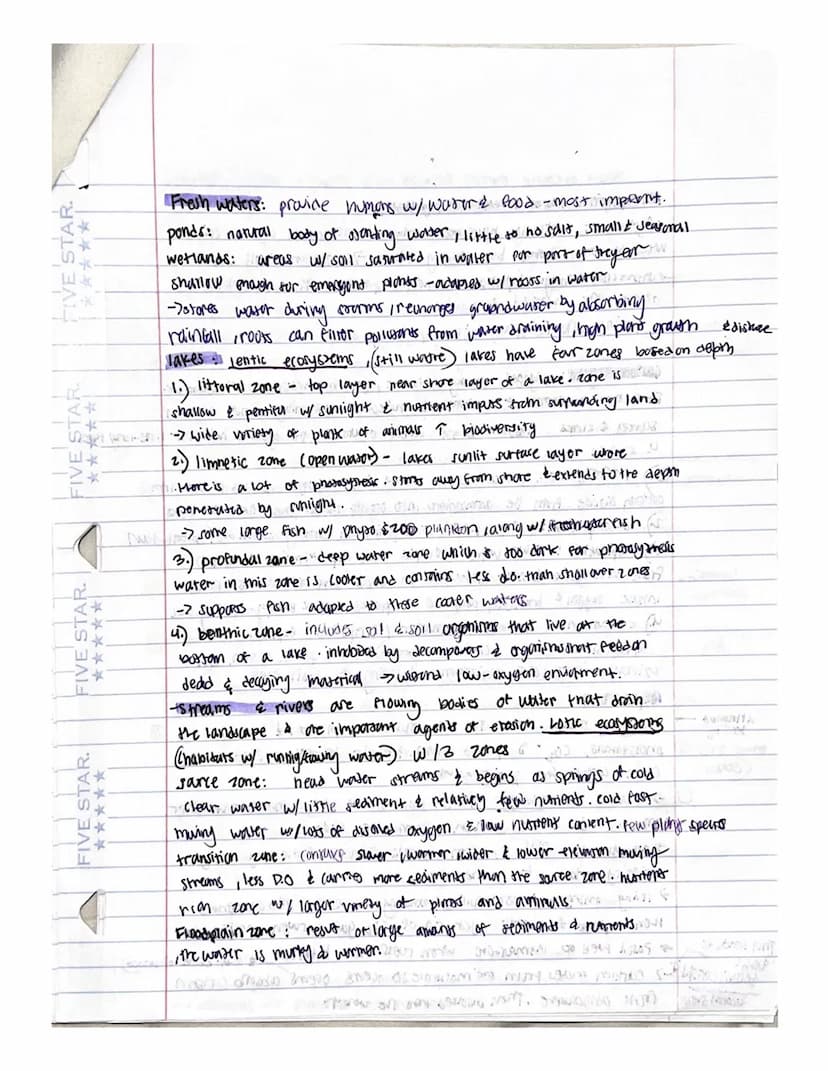 Fresh waters: provide humans w/ water & food - most important.
ponds: natural body of standing water, little to no salt, small & seasonal
wetlands: areas w/ soil saturated in water for part of the year
shallow enough for emergent plants - adapted w/ roots in water
-> stores water during storms, recharges groundwater by absorbing
rainfall, roots can filter pollutants from water draining, high plant growth
lakes: lentic ecosystems, (still water) lakes have four zones based on depth
1.) littoral zone - top layer near shore layer of a lake. zone is
shallow & plentiful w/ sunlight & nutrient inputs from surrounding land
-> wide variety of plants of animals ↑ biodiversity
2.) limnetic zone (open water) - lakes sunlit surface layer where
there is a lot of photosynthesis. starts away from shore & extends to the depth
penetrated by sunlight.
-> some large fish w/ phyto & zoo plankton, along w/ freshwater fish
3.) profundal zone - deep water zone which is too dark for photosynthesis
water in this zone is cooler and contains less d.o. than shallower zones
-> supports fish adapted to these cooler waters
4.) benthic zone - includes soil & soil organisms that live at the
bottom of a lake. inhabited by decomposers & organisms that feed on
dead & decaying material -> low-oxygen enviorment.
streams & rivers are flowing bodies of water that drain
the landscape & are important agents of erosion. Lotic ecosystems
(habitats w/ running/flowing water) w/ 3 zones
source zone: head water streams & begins as springs of cold
clear water w/ little sediment & relatively few nutrients. cold fast-
moving water w/ lots of disolved oxygen & low nutrient content. few plant species
transition zone: contains slower, warmer, wider & lower-elevation moving
streams, less D.O & carries more sediments than the source zone. nutrient
rich zone w/ larger variety of plants and animals
Floodplain zone: result of large amounts of sediments & nutrients
, the water is murky & warmer.
FIVE STAR.
FIVE STAR.
FIVE STAR.
FIVE STAR.